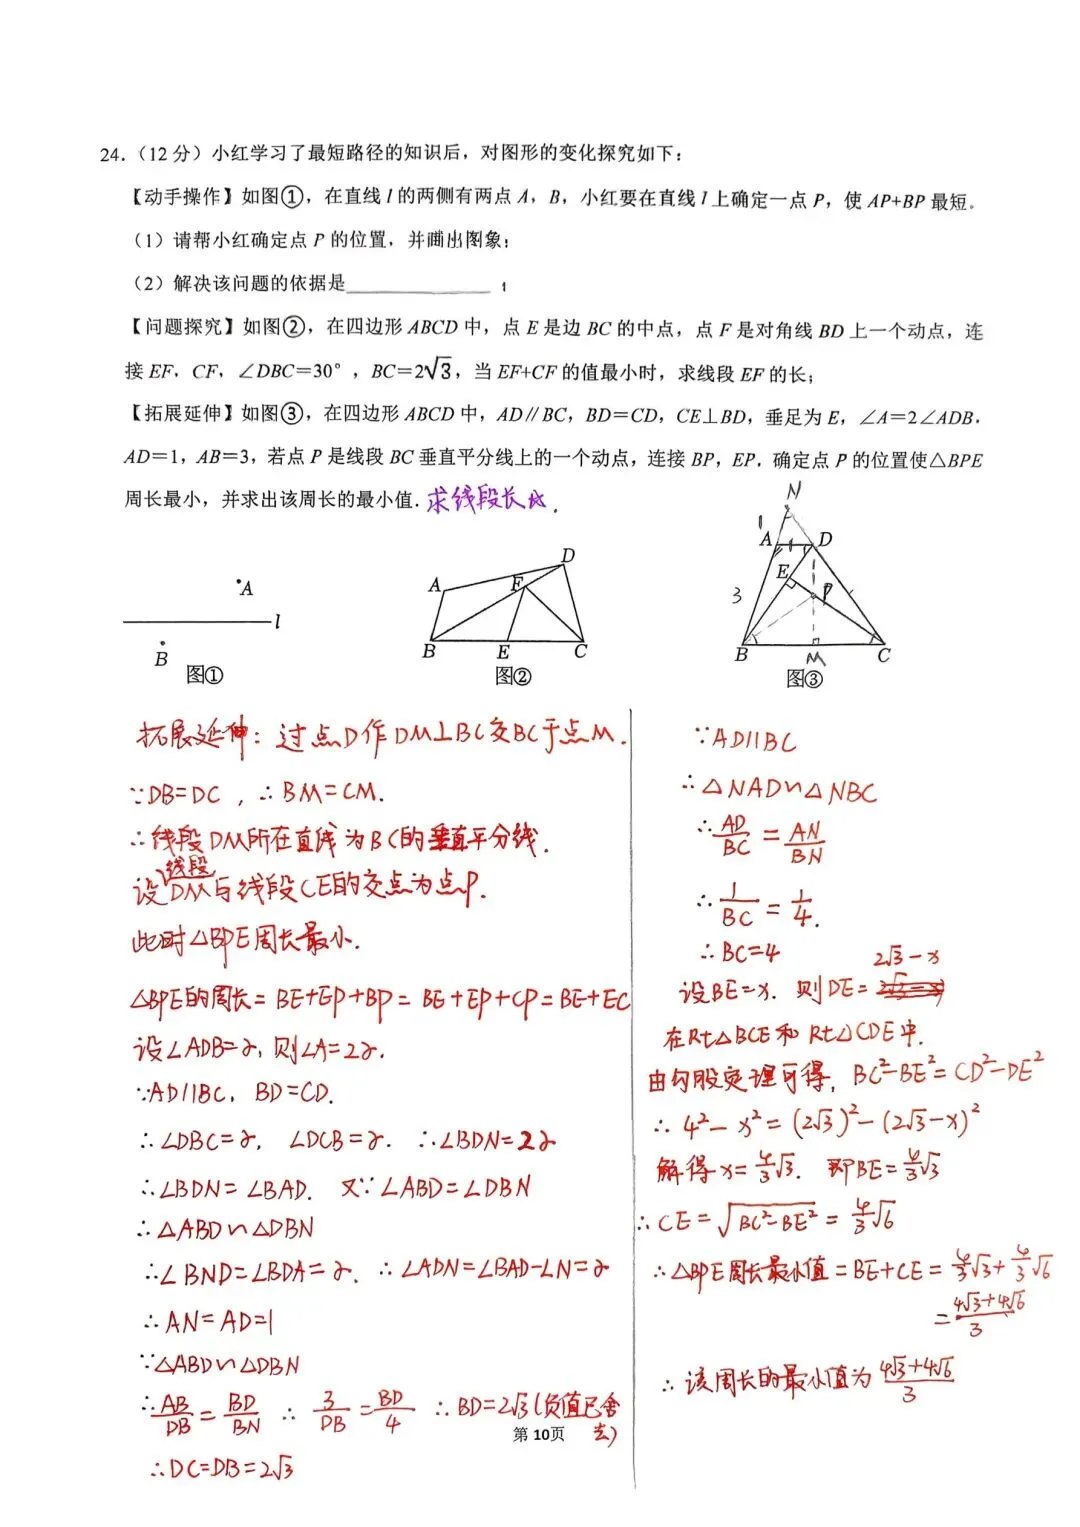 24.（12 分）小红学习了最短路径的知识后，对图形的变化探究如下：
【动手操作】如图①，在直线 l 的两侧有两点 A，B，小红要在直线 l 上确定一点 P，使 AP+BP 最短。
（1）请帮小红确定点 P 的位置，并画出图象；
（2）解决该问题的依据是____________；
【问题探究】如图②，在四边形 ABCD 中，点 E 是边 BC 的中点，点 F 是对角线 BD 上一个动点，连
接 EF，CF，∠DBC＝30°，BC＝2√3，当 EF+CF 的值最小时，求线段 EF 的长；
【拓展延伸】如图③，在四边形 ABCD 中，AD∥BC，BD＝CD，CE⊥BD，垂足为 E，∠A＝2∠ADB，
AD＝1，AB＝3，若点 P 是线段 BC 垂直平分线上的一个动点，连接 BP，EP．确定点 P 的位置使△BPE
周长最小，并求出该周长的最小值．求线段长比．
A
l
B
图①
A
D
F
B
E
C
图②
N
1
A
1
D
E
3
P
B
M
C
图③
拓展延伸：过点D作DM⊥BC交BC于点M．
∵DB=DC，∴BM=CM．
∴线段DM所在直线为BC的垂直平分线．
设线段DM与线段CE的交点为点P．
此时△BPE周长最小．
△BPE的周长=BE+EP+BP=BE+EP+CP=BE+EC
设∠ADB=α，则∠A=2α．
∵AD∥BC，BD=CD．
∴∠DBC=α，∠DCB=α．∴∠BDN=2α
∴∠BDN=∠BAD．又∵∠ABD=∠DBN
∴△ABD∽△DBN
∴∠BND=∠BDA=α．∴∠ADN=∠BAD-∠N=α
∴AN=AD=1
∵△ABD∽△DBN
∴AB/DB=BD/BN ∴3/DB=BD/4 ∴BD=2√3(负值已舍去)
∴DC=DB=2√3
∵AD∥BC
∴△NAD∽△NBC
∴AD/BC=AN/BN
∴1/BC=1/4．
∴BC=4
设BE=x．则DE=2√3-x
在Rt△BCE和Rt△CDE中．
由勾股定理可得，BC²-BE²=CD²-DE²
∴4²-x²=(2√3)²-(2√3-x)²
解得x=4/3√3．即BE=4/3√3
∴CE=√(BC²-BE²)=4/3√6
∴△BPE周长最小值=BE+CE=4/3√3+4/3√6
=(4√3+4√6)/3
∴该周长的最小值为(4√3+4√6)/3
第 10页